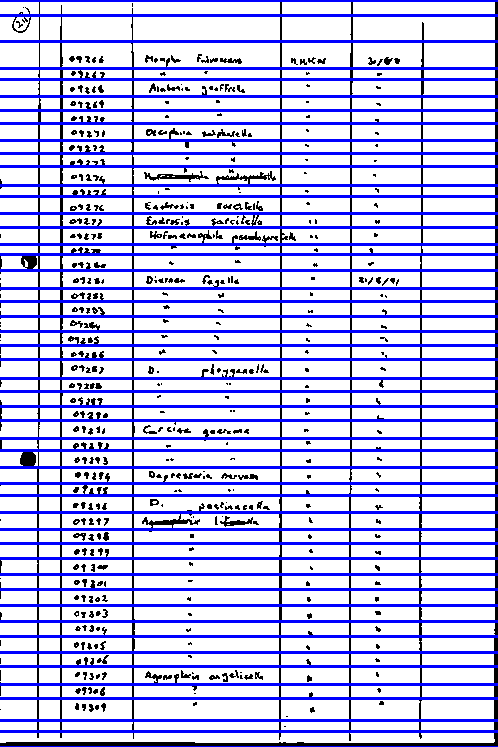 09266 Mompha Fulvescens H.H.K.W 21/8/91
09267 " " " "
09268 Alabonia geoffrella " "
09269 " " " "
09270 " " " "
09271 Oecophora sulphurella " "
09272 " " " "
09273 " " " "
09274 pseudospretella " "
09275 " " " "
09276 Endrosis sarcitella " "
09277 Endrosis sarcitella " "
09278 Hofmannophila pseudospretella " "
09279 " " " "
09280 " " " "
09281 Diurnea fagella " 21/8/91
09282 " " " "
09283 " " " "
09284 " " " "
09285 " " " "
09286 " " " "
09287 D. phryganella " "
09288 " " " "
09289 " " " "
09290 " " " "
09291 Carcina quercana " "
09292 " " " "
09293 " " " "
09294 Depressaria nervosa " "
09295 " " " "
09296 D. pastinacella " "
09297 Agonopterix " "
09298 " " "
09299 " " "
09300 " " "
09301 " " "
09302 " " "
09303 " " "
09304 " " "
09305 " " "
09306 " " "
09307 Agonopterix angelicella " "
09308 " " "
09309 " " "